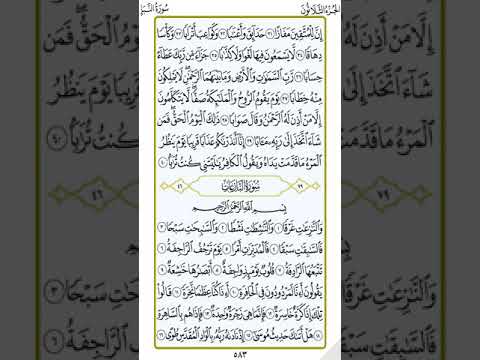 الجزء الثلاثون
سورة النبإ
إِنَّ لِلْمُتَّقِينَ مَفَازًا ٣١ حَدَائِقَ وَأَعْنَٰبًا ٣٢ وَكَوَاعِبَ أَتْرَابًا ٣٣ وَكَأْسًا
دِهَاقًا ٣٤ لَّا يَسْمَعُونَ فِيهَا لَغْوًا وَلَا كِذَّٰبًا ٣٥ جَزَاءً مِّن رَّبِّكَ عَطَاءً
حِسَابًا ٣٦ رَّبِّ السَّمَٰوَٰتِ وَالْأَرْضِ وَمَا بَيْنَهُمَا الرَّحْمَٰنِ لَا يَمْلِكُونَ
مِنْهُ خِطَابًا ٣٧ يَوْمَ يَقُومُ الرُّوحُ وَالْمَلَٰئِكَةُ صَفًّا لَّا يَتَكَلَّمُونَ
إِلَّا مَنْ أَذِنَ لَهُ الرَّحْمَٰنُ وَقَالَ صَوَابًا ٣٨ ذَٰلِكَ الْيَوْمُ الْحَقُّ فَمَن
شَاءَ اتَّخَذَ إِلَىٰ رَبِّهِ مَـَٔابًا ٣٩ إِنَّا أَنذَرْنَٰكُمْ عَذَابًا قَرِيبًا يَوْمَ يَنظُرُ
الْمَرْءُ مَا قَدَّمَتْ يَدَاهُ وَيَقُولُ الْكَافِرُ يَٰلَيْتَنِي كُنتُ تُرَٰبًا ٤٠
٧٩ سُورَةُ النَّازِعَاتِ ٤٦
بِسْمِ اللَّهِ الرَّحْمَٰنِ الرَّحِيمِ
وَالنَّٰزِعَٰتِ غَرْقًا ١ وَالنَّٰشِطَٰتِ نَشْطًا ٢ وَالسَّٰبِحَٰتِ سَبْحًا ٣
فَالسَّٰبِقَٰتِ سَبْقًا ٤ فَالْمُدَبِّرَٰتِ أَمْرًا ٥ يَوْمَ تَرْجُفُ الرَّاجِفَةُ ٦
تَتْبَعُهَا الرَّادِفَةُ ٧ قُلُوبٌ يَوْمَئِذٍ وَاجِفَةٌ ٨ أَبْصَٰرُهَا خَٰشِعَةٌ ٩
يَقُولُونَ أَءِنَّا لَمَرْدُودُونَ فِي الْحَافِرَةِ ١٠ أَءِذَا كُنَّا عِظَٰمًا نَّخِرَةً ١١ قَالُوا
تِلْكَ إِذًا كَرَّةٌ خَاسِرَةٌ ١٢ فَإِنَّمَا هِيَ زَجْرَةٌ وَٰحِدَةٌ ١٣ فَإِذَا هُم بِالسَّاهِرَةِ
١٤ هَلْ أَتَىٰكَ حَدِيثُ مُوسَىٰ ١٥ إِذْ نَادَىٰهُ رَبُّهُ بِالْوَادِ الْمُقَدَّسِ طُوًى ١٦
٥٨٣